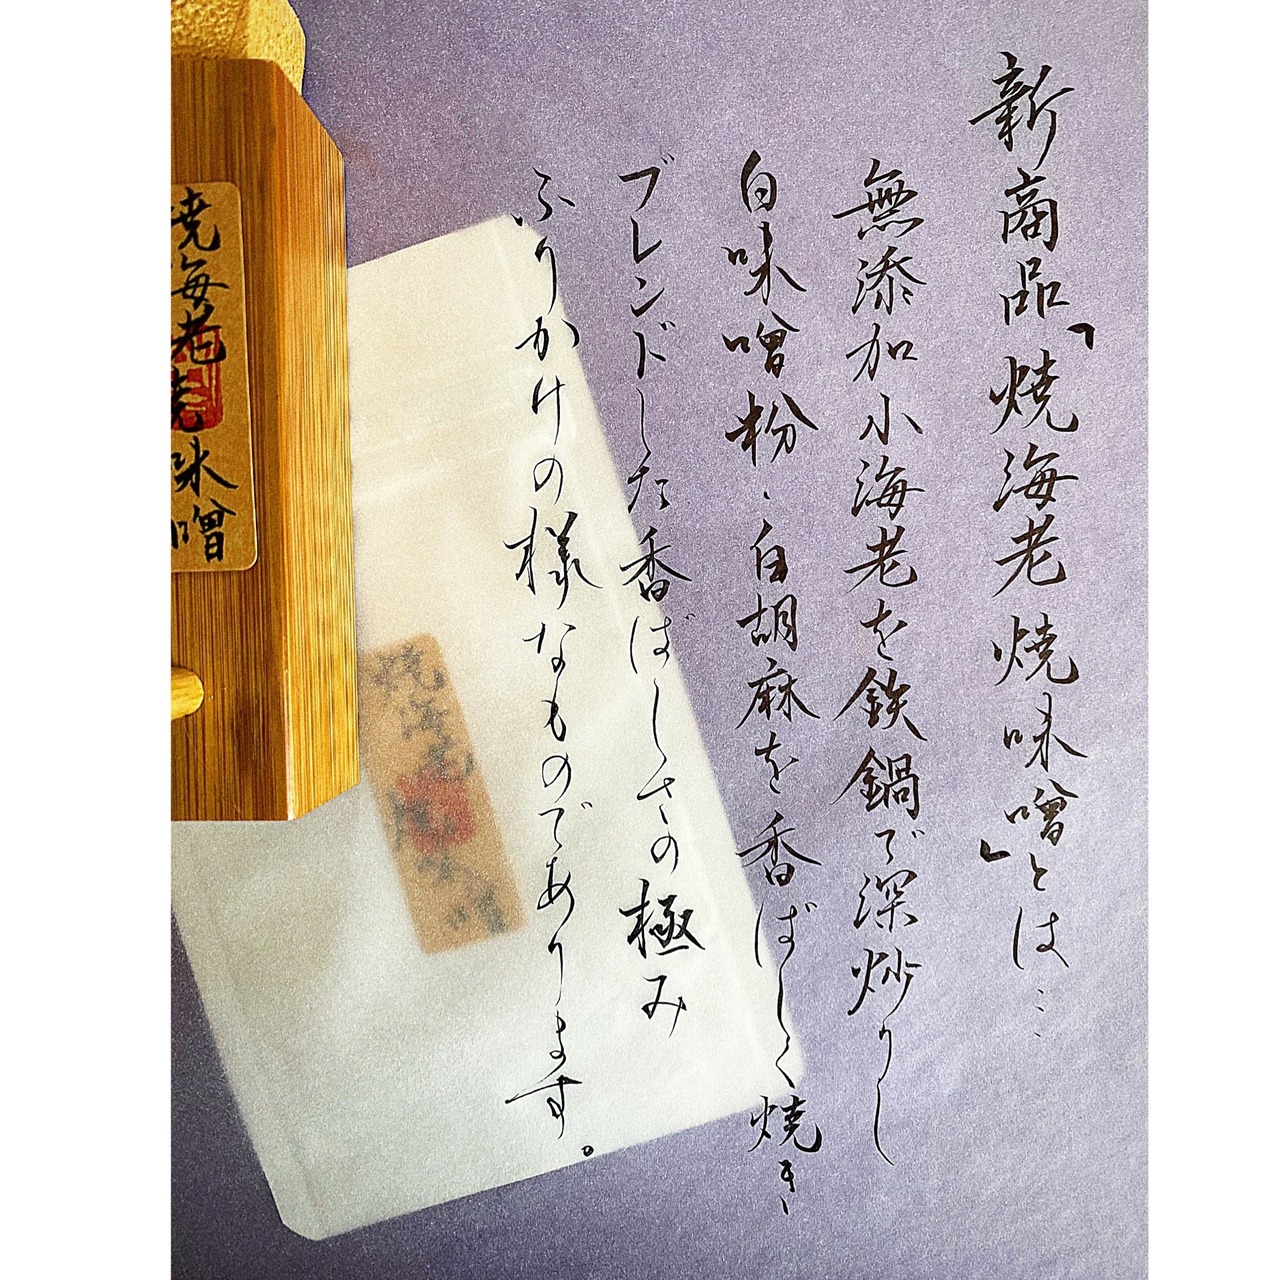 新商品「焼海老焼味噌」とは…
無添加小海老を鉄鍋で深炒りし
白味噌粉、白胡麻を香ばしく焼き、
ブレンドした香ばしさの極み
ふりかけの様なものであります。
焼海老焼味噌
焼海老焼味噌